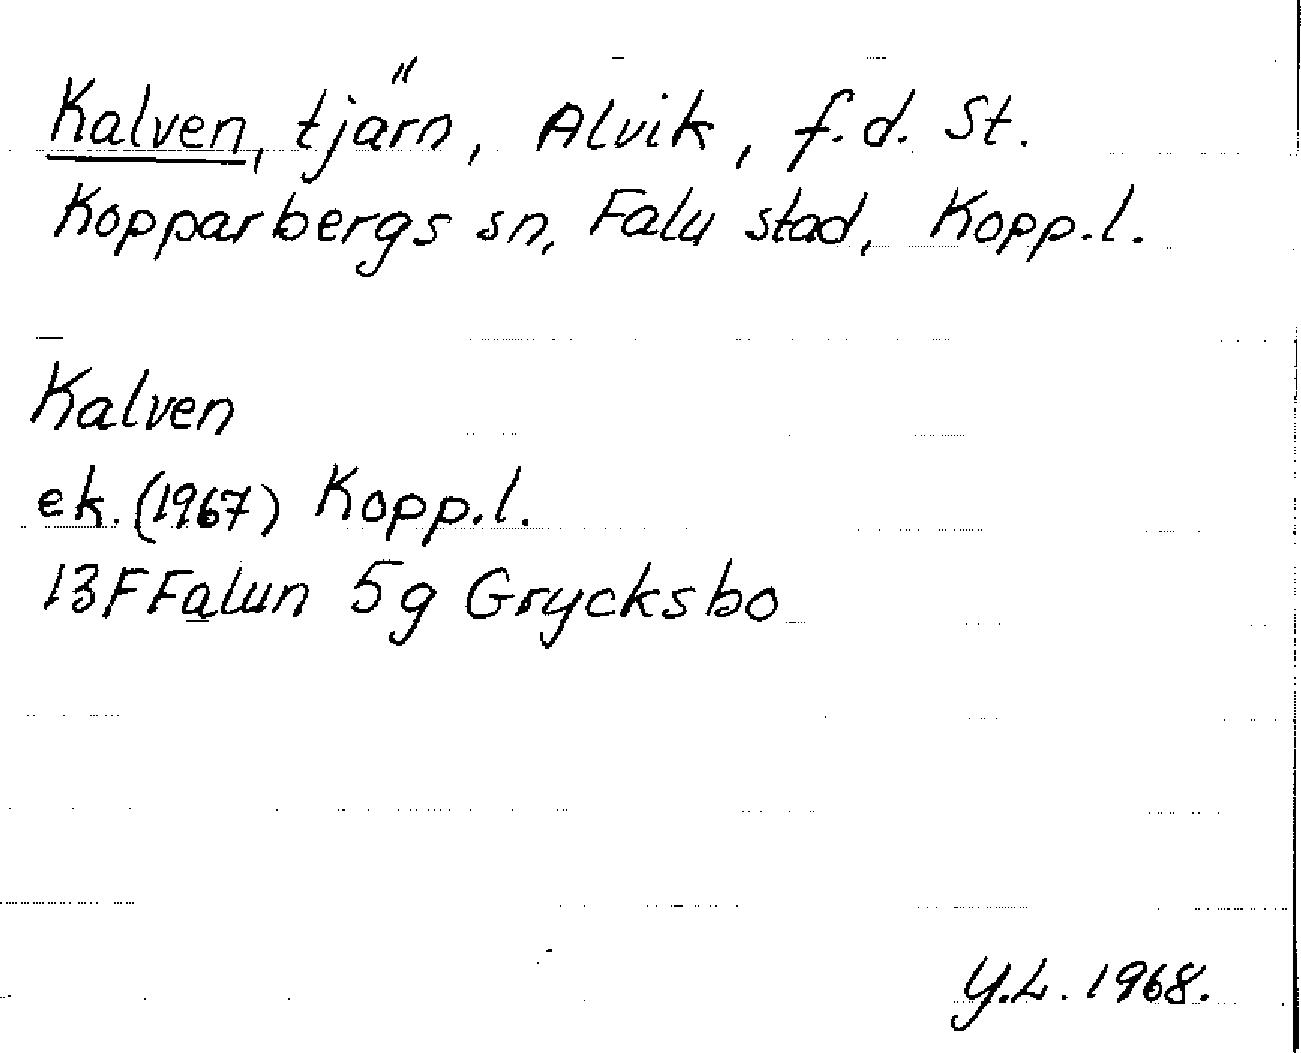 Kalven, tjärn, Alvik, f.d. St.
Kopparbergs sn, Falu stad, Kopp.l.
Kalven
ek. (1967) Kopp.l.
13F Falun 5g Grycksbo
Y.L. 1968.